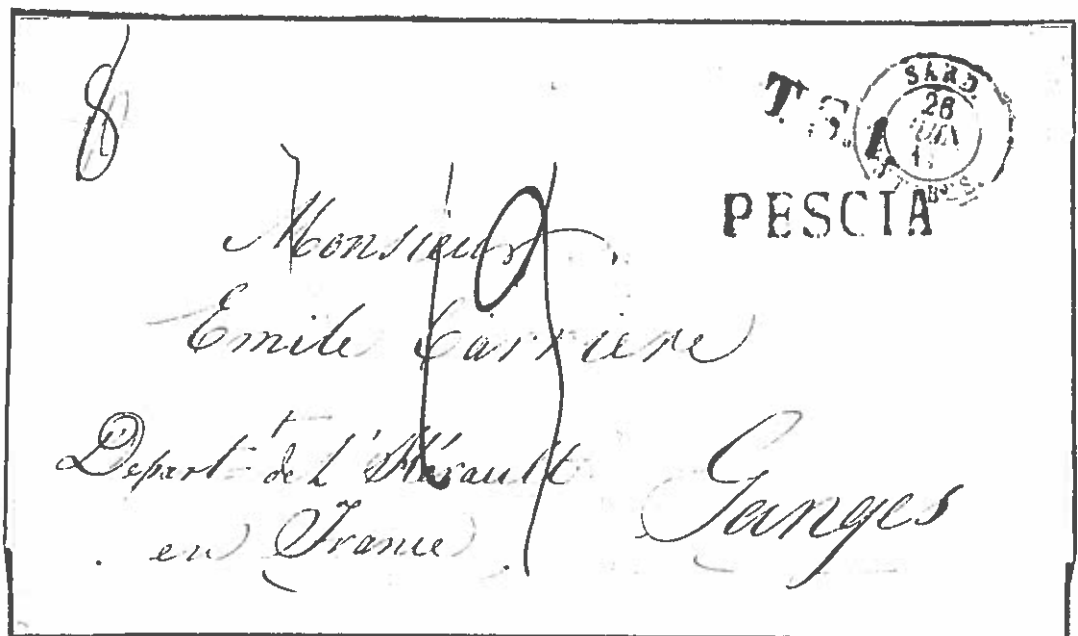 8
T.S.1.
SARD.
28
JUIN
PESCIA
Monsieur
Emile Carriere
Depart.t de l'Hérault
en France
Ganges